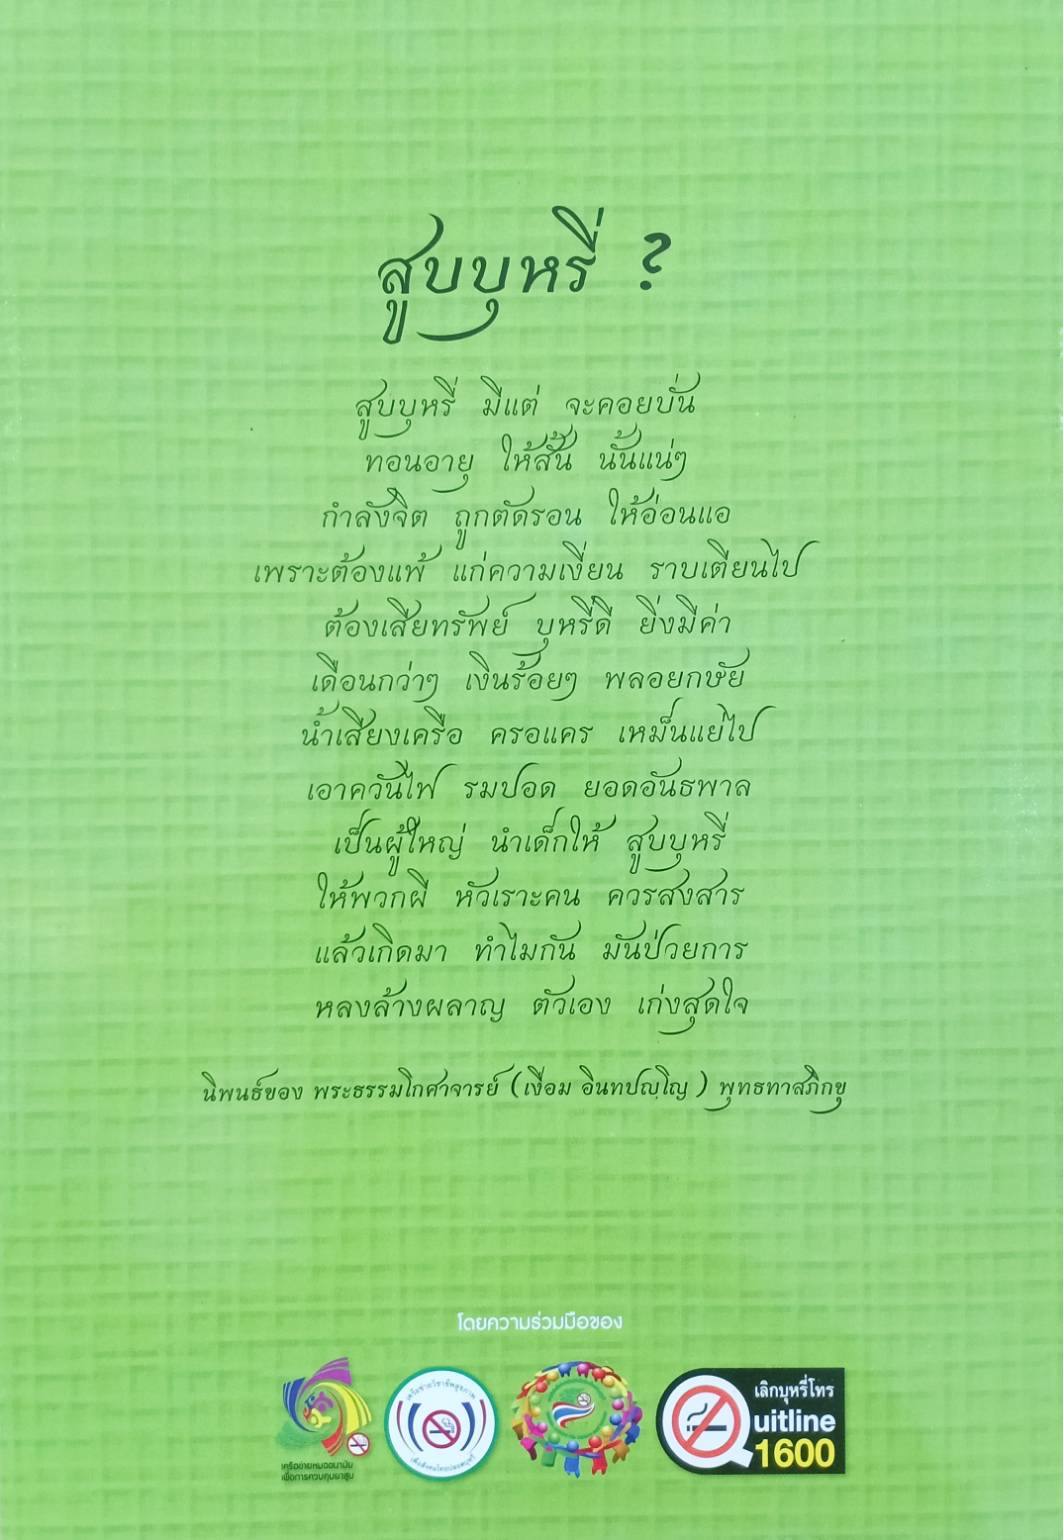 สูบบุหรี่ ?
สูบบุหรี่ มีแต่ จะคอยบั่น
ทอนอายุ ให้สั้น นั้นแน่ๆ
กำลังจิต ถูกตัดรอน ให้อ่อนแอ
เพราะต้องแพ้ แก่ความเงี่ยน ราบเตียนไป
ต้องเสียทรัพย์ บุหรี่ดี ยิ่งมีค่า
เดือนกว่าๆ เงินร้อยๆ พลอยกษัย
น้ำเสียงเครือ ครอแคร เหม็นแย่ไป
เอาควันไฟ รมปอด ยอดอันธพาล
เป็นผู้ใหญ่ นำเด็กให้ สูบบุหรี่
ให้พวกผี หัวเราะคน ควรสงสาร
แล้วเกิดมา ทำไมกัน มันป่วยการ
หลงล้างผลาญ ตัวเอง เก่งสุดใจ
นิพนธ์ของ พระธรรมโกศาจารย์ (เงื่อม อินทปญฺโญ) พุทธทาสภิกขุ
โดยความร่วมมือของ
เครือข่ายหมออนามัย
เพื่อการควบคุมยาสูบ
เครือข่ายวิชาชีพสุขภาพ
เพื่อสังคมไทยปลอดบุหรี่
เลิกบุหรี่โทร
Quitline
1600